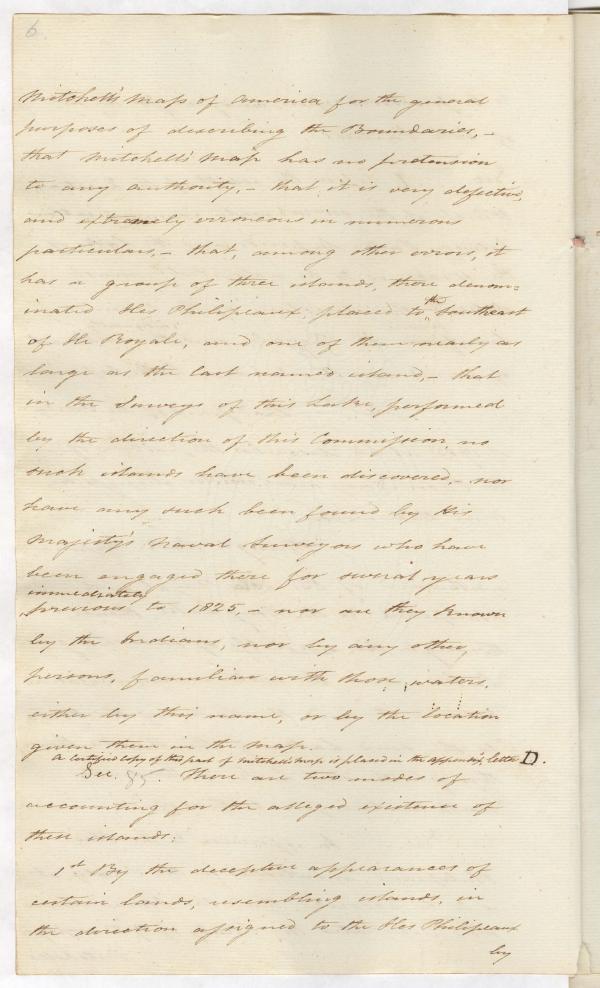 6.
Mitchell's Map of America for the general
purposes of describing the Boundaries,-
that Mitchell's Map has no pretension
to any authority,- that it is very defective,
and extremely erroneous in numerous
particulars,- that, among other errors, it
has a group of three islands, there denom=
inated Iles Philipeaux, placed to the Southeast
of Ile Royale, and one of them nearly as
large as the last named island,- that
in the Surveys of this Lake, performed
by the direction of this Commission, no
such islands have been discovered,- nor
have any such been found by His
Majesty's Naval Surveyors who have
been engaged there for several years
immediately
previous to 1825,- nor are they known
by the Indians, nor by any other,
persons, familiar with those waters,
either by this name, or by the location
given them in the map.
A certified copy of this part of Mitchell's map is placed in the appendix, letter D.
Sec. There are two modes of
accounting for the alleged existence of
these islands:
1st By the deceptive appearances of
certain lands, resembling islands, in
the direction assigned to the Iles Philipeaux
by